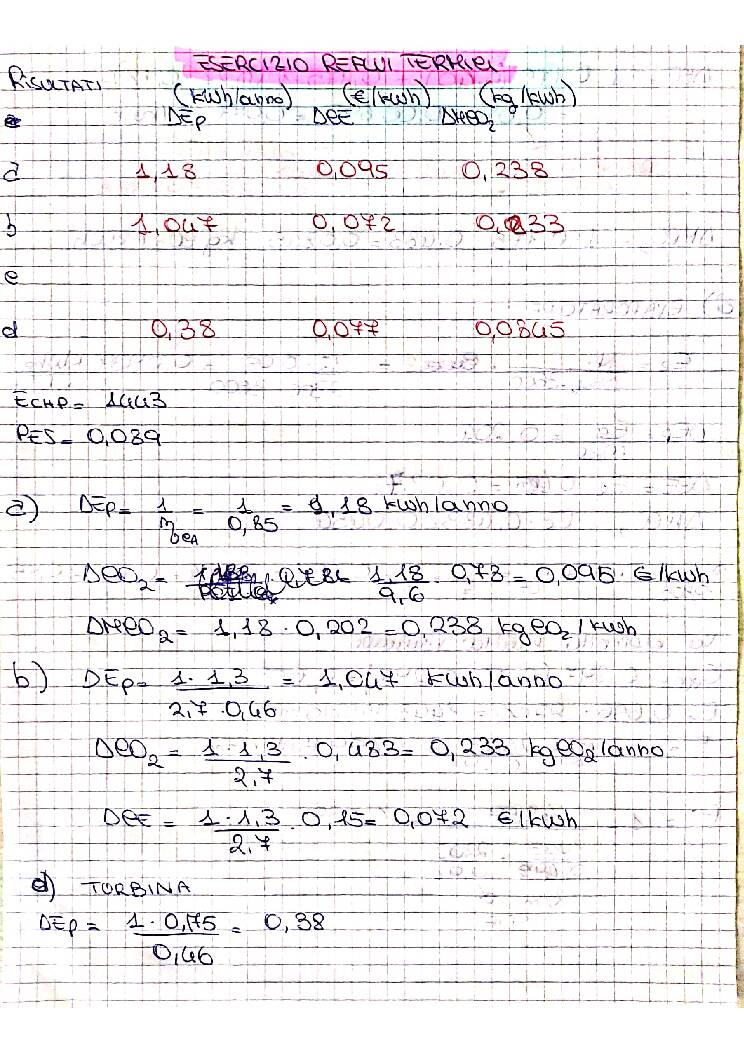 ESERCIZIO REFLUI TERMICI
RISULTATI
(kWh/anno) (€/kWh) (kg/kWh)
ΔEp ΔCE ΔMCO₂
a 1,18 0,095 0,238
b 1,047 0,072 0,233
c
d 0,38 0,077 0,0845
ECHP= 1443
PES= 0,089
a) ΔEp= 1/ηDCA = 1/0,85 = 1,18 kWh/anno
ΔCO₂= 1,18/9,6 · 0,78 = 0,095 · €/kWh
ΔMCO₂= 1,18 · 0,202 = 0,238 kgCO₂/kWh
b) ΔEp= 1 · 1,3/2,7 · 0,46 = 1,047 kWh/anno
ΔCO₂= 1 · 1,3/2,7 · 0,483= 0,233 kgCO₂/anno
ΔCE = 1 · 1,3/2,7 · 0,15= 0,072 €/kWh
d) TURBINA
ΔEp= 1 · 0,175/0,46 = 0,38